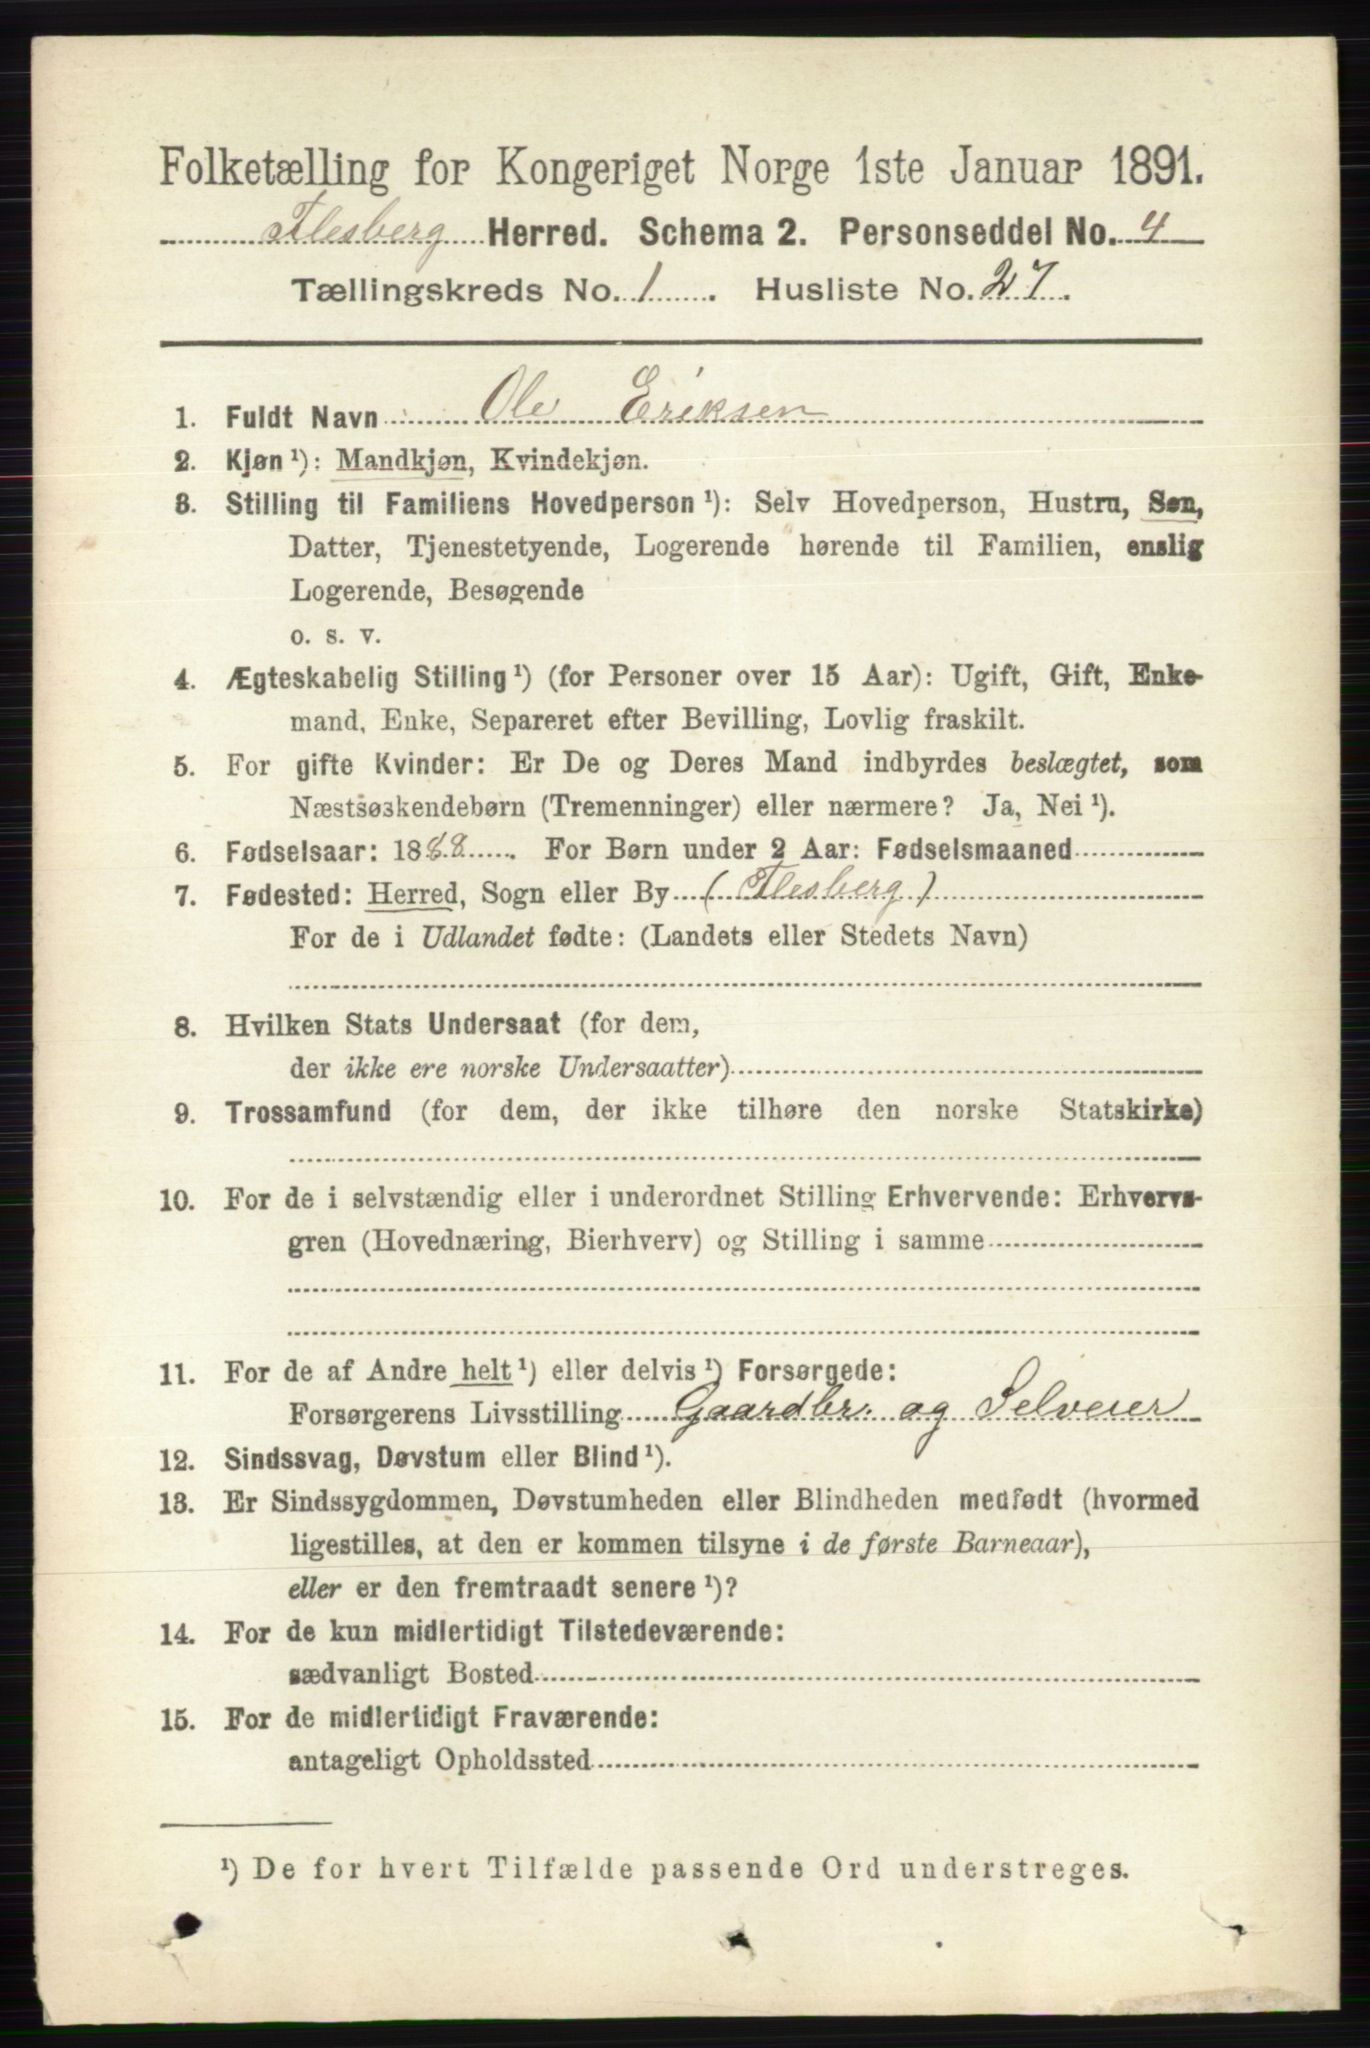 Folketælling for Kongeriget Norge 1ste Januar 1891.
Flesberg Herred. Schema 2. Personseddel No. 4
Tællingskreds No. 1. Husliste No. 27.
1. Fuldt Navn Ole Eriksen
2. Kjøn ¹): Mandkjøn, Kvindekjøn.
3. Stilling til Familiens Hovedperson ¹): Selv Hovedperson, Hustru, Søn,
Datter, Tjenestetyende, Logerende hørende til Familien, enslig
Logerende, Besøgende
o. s. v.
4. Ægteskabelig Stilling ¹) (for Personer over 15 Aar): Ugift, Gift, Enke-
mand, Enke, Separeret efter Bevilling, Lovlig fraskilt.
5. For gifte Kvinder: Er De og Deres Mand indbyrdes beslægtet, som
Næstsøskendebørn (Tremenninger) eller nærmere? Ja, Nei ¹).
6. Fødselsaar: 1888. For Børn under 2 Aar: Fødselsmaaned
7. Fødested: Herred, Sogn eller By (Flesberg)
For de i Udlandet fødte: (Landets eller Stedets Navn)
8. Hvilken Stats Undersaat (for dem,
der ikke ere norske Undersaatter)
9. Trossamfund (for dem, der ikke tilhøre den norske Statskirke)
10. For de i selvstændig eller i underordnet Stilling Erhvervende: Erhvervs-
gren (Hovednæring, Bierhverv) og Stilling i samme
11. For de af Andre helt ¹) eller delvis ¹) Forsørgede:
Forsørgerens Livsstilling Gaardbr. og Selveier
12. Sindssvag, Døvstum eller Blind ¹).
13. Er Sindssygdommen, Døvstumheden eller Blindheden medfødt (hvormed
ligestilles, at den er kommen tilsyne i de første Barneaar),
eller er den fremtraadt senere ¹)?
14. For de kun midlertidigt Tilstedeværende:
sædvanligt Bosted
15. For de midlertidigt Fraværende:
antageligt Opholdssted
¹) De for hvert Tilfælde passende Ord understreges.